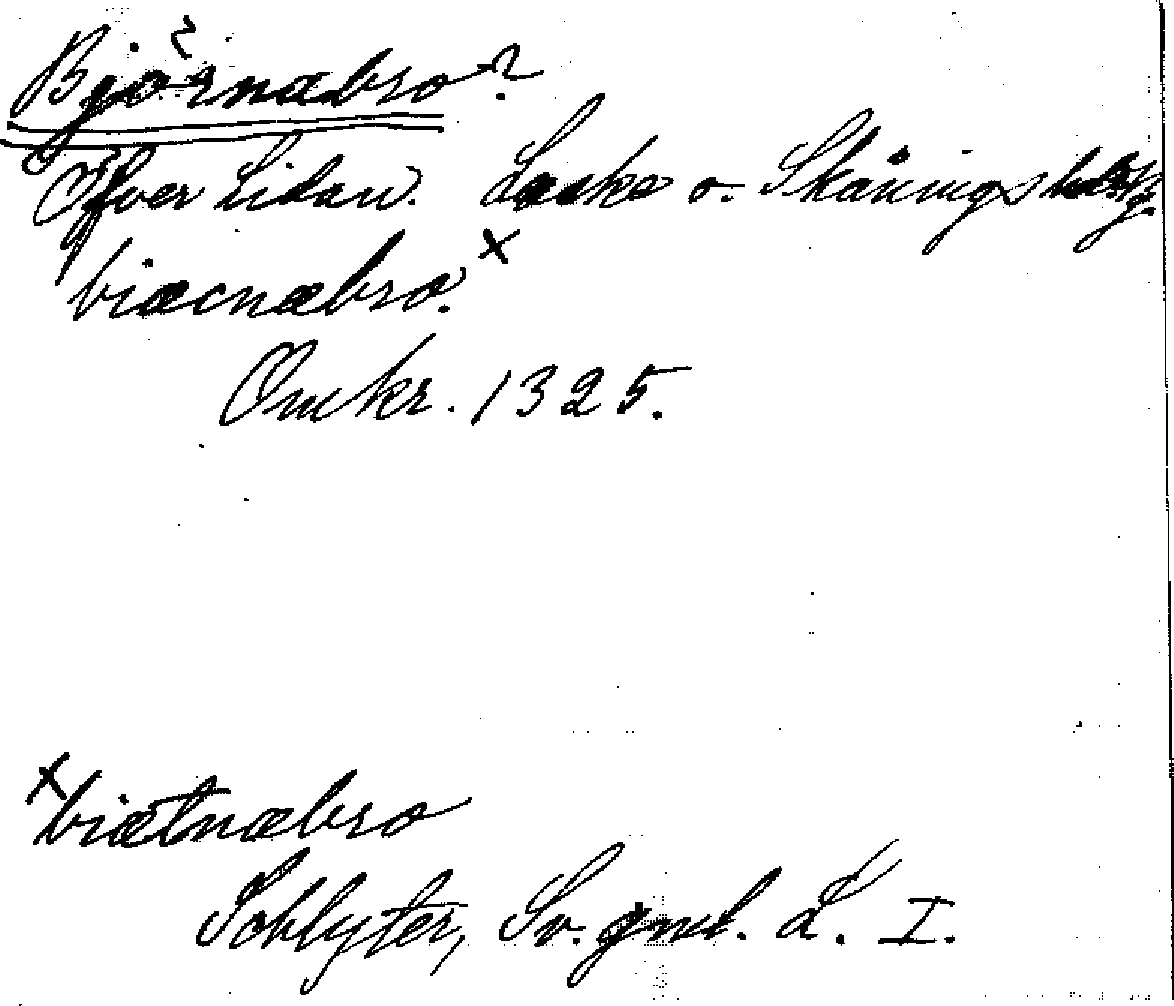 Björnabro?
Öfver Lidan. Laske o. Skånings hdr
biæcnæbro. x
Omkr. 1325.
x biætnæbro
Schlyter, Sv. gml. L. I.